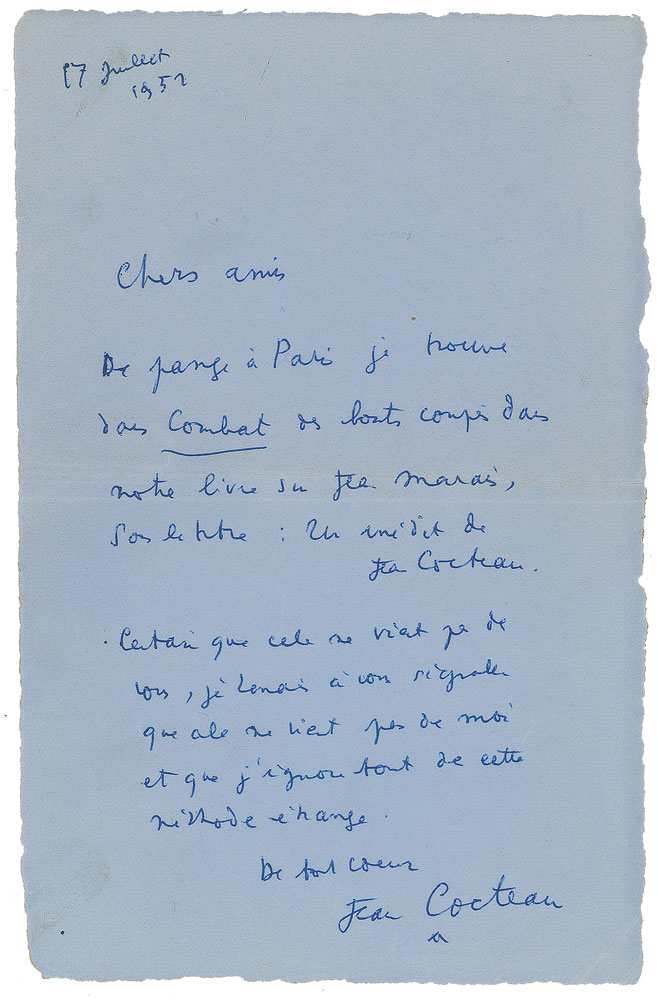 17 Juillet
1951
Chers amis
De passage à Paris je trouve
dans Combat des bouts coupés dans
notre livre sur Jean Marais,
sous le titre : Un inédit de
Jean Cocteau.
Certain que cela ne vient pas de
vous, je tenais à vous signaler
que cela ne vient pas de moi
et que j'ignore tout de cette
méthode étrange.
De tout coeur
Jean Cocteau